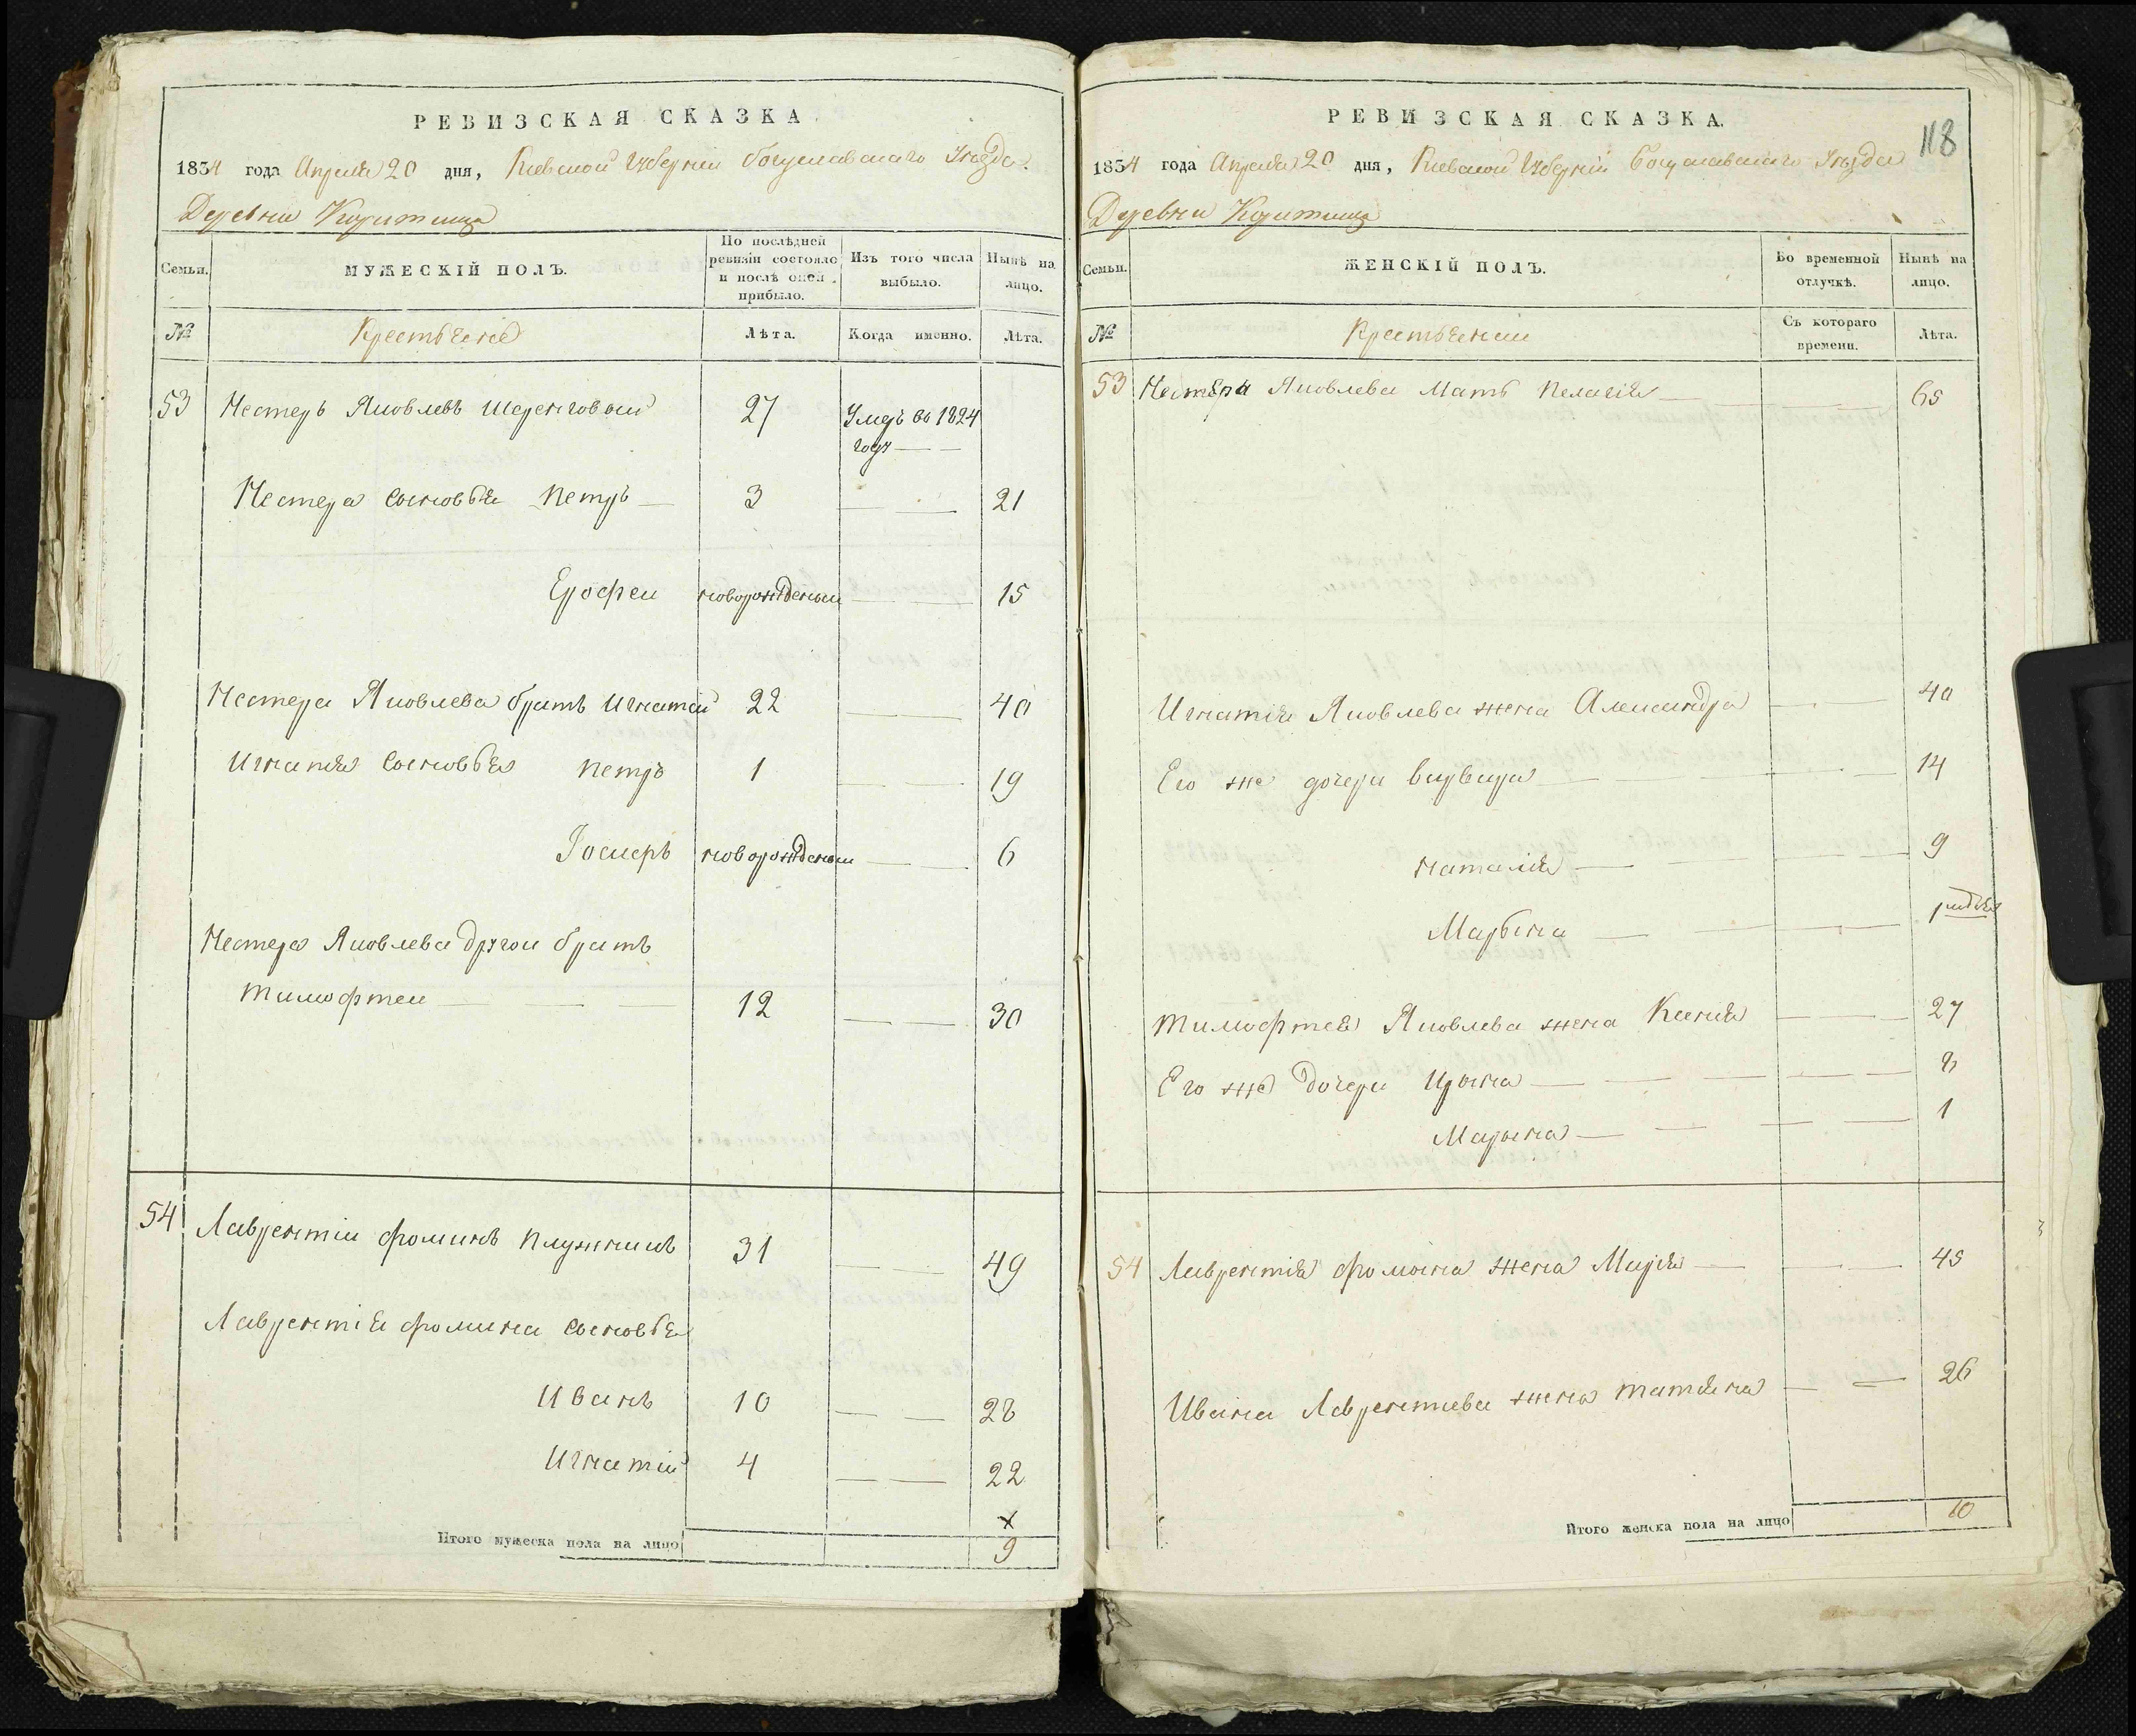 РЕВИЗСКАЯ СКАЗКА
1834 года Апреля 20 дня, Киевской Губернии Богуславскаго Уезда.
Деревни
Семьи.
МУЖЕСКІЙ ПОЛЪ.
По послѣдней ревизіи состояло и послѣ оной прибыло.
Изъ того числа выбыло.
Нынѣ на лицо.
№
Крестьяне
Лѣта.
Когда именно.
Лѣта.
53 Нестеръ Яковлевъ 27 Умеръ въ 1824 году
Нестера сыновья Петръ 3 21
Ерофеи новорожденыи 15
Нестера Яковлева братъ Игнатій 22 40
Игнатія сыновья Петръ 1 19
новорожденыи 6
Нестера Яковлева другои братъ
Тимофтеи 12 30
54 Лаврентіи Фоминъ 31 49
Лаврентія Фомина сыновья
Иванъ 10 28
Игнатіи 4 22
Итого мужеска пола на лицо 9
РЕВИЗСКАЯ СКАЗКА.
118
1834 года Апреля 20 дня, Киевской Губерніи Богуславскаго Уезда
Деревни
Семьи.
ЖЕНСКІЙ ПОЛЪ.
Во временной отлучкѣ.
Нынѣ на лицо.
№
Съ котораго времени.
Лѣта.
53 Нестера Яковлева Мать Пелагія 65
Игнатія Яковлева жена Александра 40
Его же дочери Варвара 14
Наталія 9
Марьена 1
Тимофтея Яковлева жена Ксенія 27
Его же дочери Ирына 8
Марьена 1
54 Лаврентія Фомина жена Марія 45
Ивана Лаврентиева жена Татияна 26
Итого женска пола на лицо 10